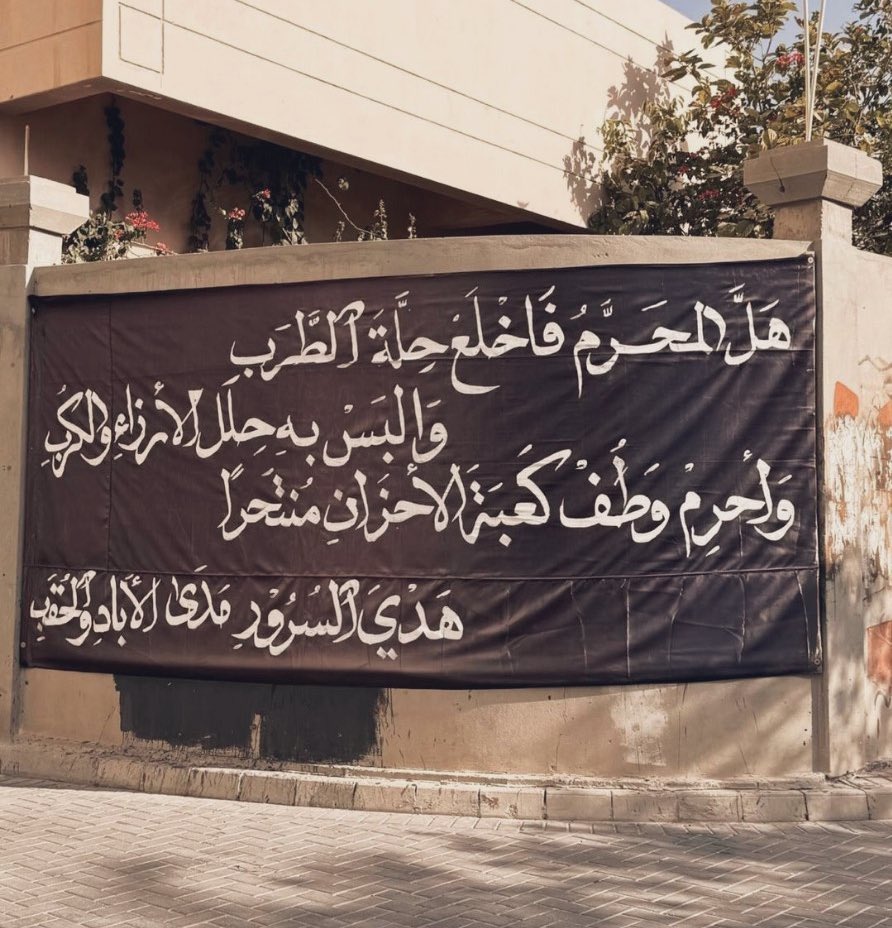 هَلَّ المحَرَّمُ فَاخْلَعْ حِلَّةَ ٱلطَّرَب
وَالبَسْ بِهِ حِلَلَ الأرزاءِ والكرُبِ
وَأحرِمْ وَطُفْ كَعبَةَ الأحزَانِ مُنتَحَرًا
هَدْيَ ٱلسُرُوْرِ مَدَى الأبَادِ وَٱلحُقَبِ